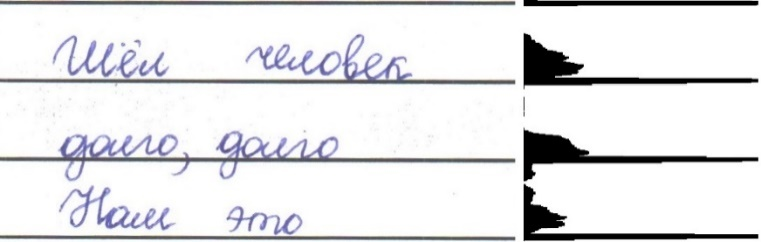 Шёл человек
долго, долго
Нам это